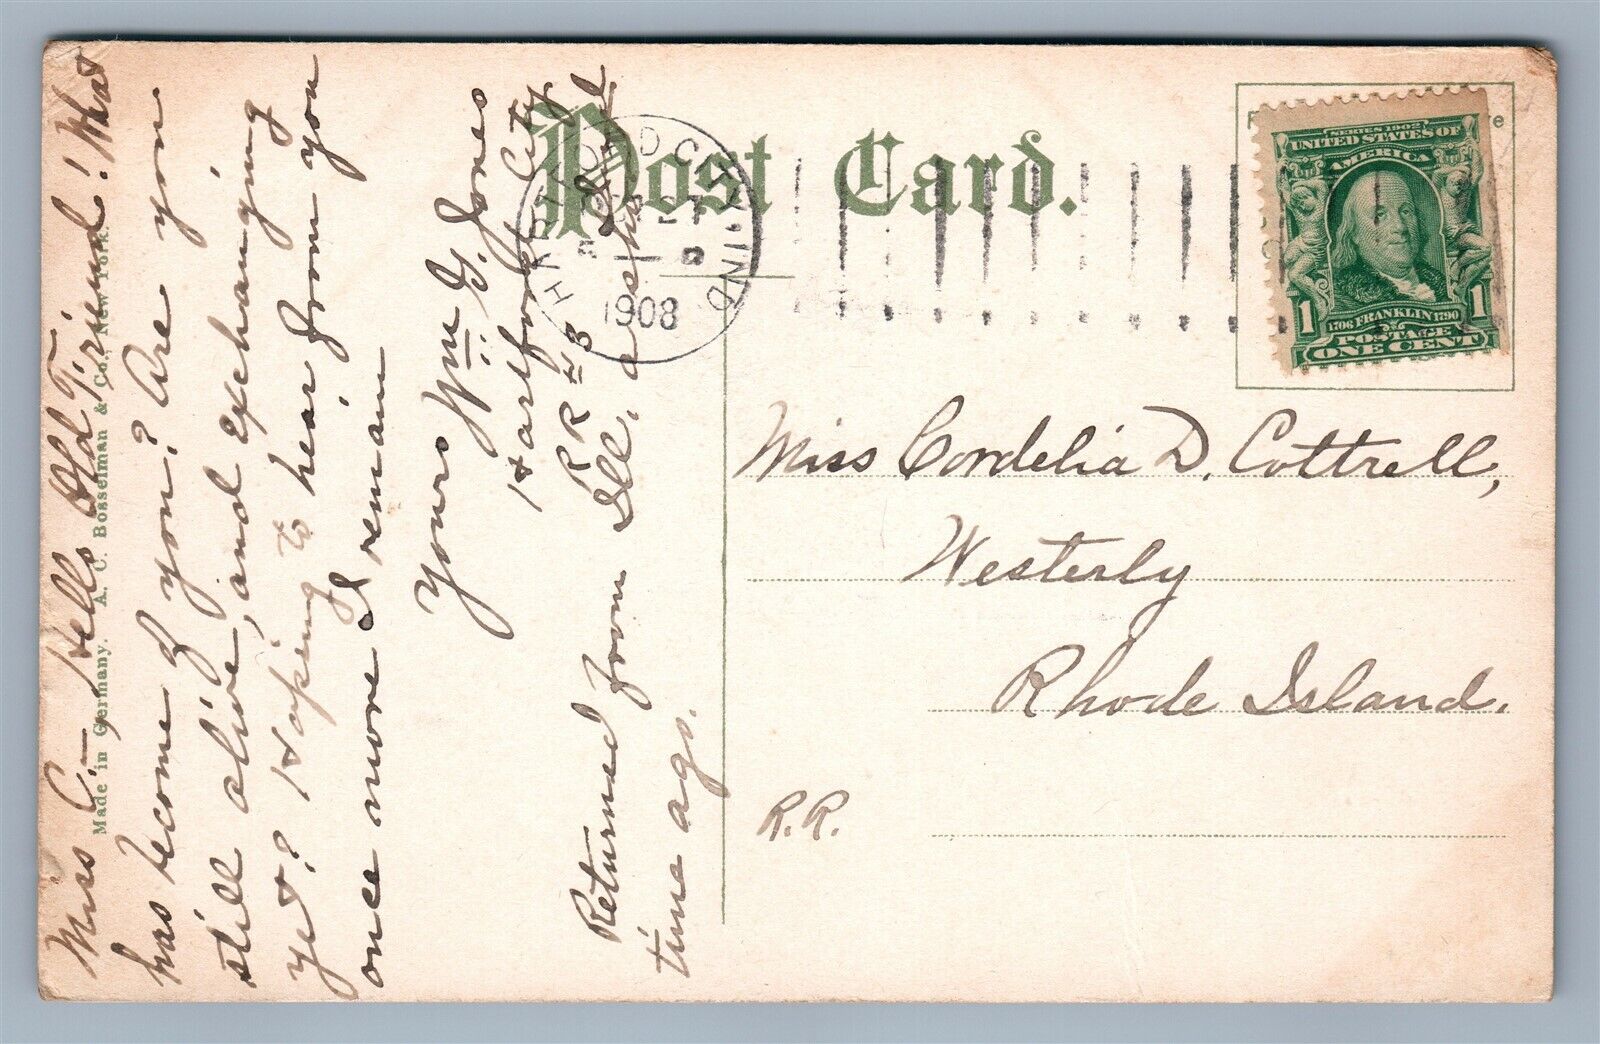 Post Card.
HARTFORD CITY IND.
1908
SERIES 1902
UNITED STATES OF
AMERICA
1706 FRANKLIN 1790
POSTAGE
1 1
ONE CENT
Miss Cordelia D. Cottrell,
Westerly
Rhode Island.
R.R.
Miss C.- Hello Old Friend! What
has become of you? Are you
still alive, and exchanging
yet? Hoping to hear from you
once more I remain
Yours Wm G. Jones
Hartford City
RR #3 Ind
Returned from Ill. a short
time ago.
Made in Germany. A. C. Bosselman & Co., New York.